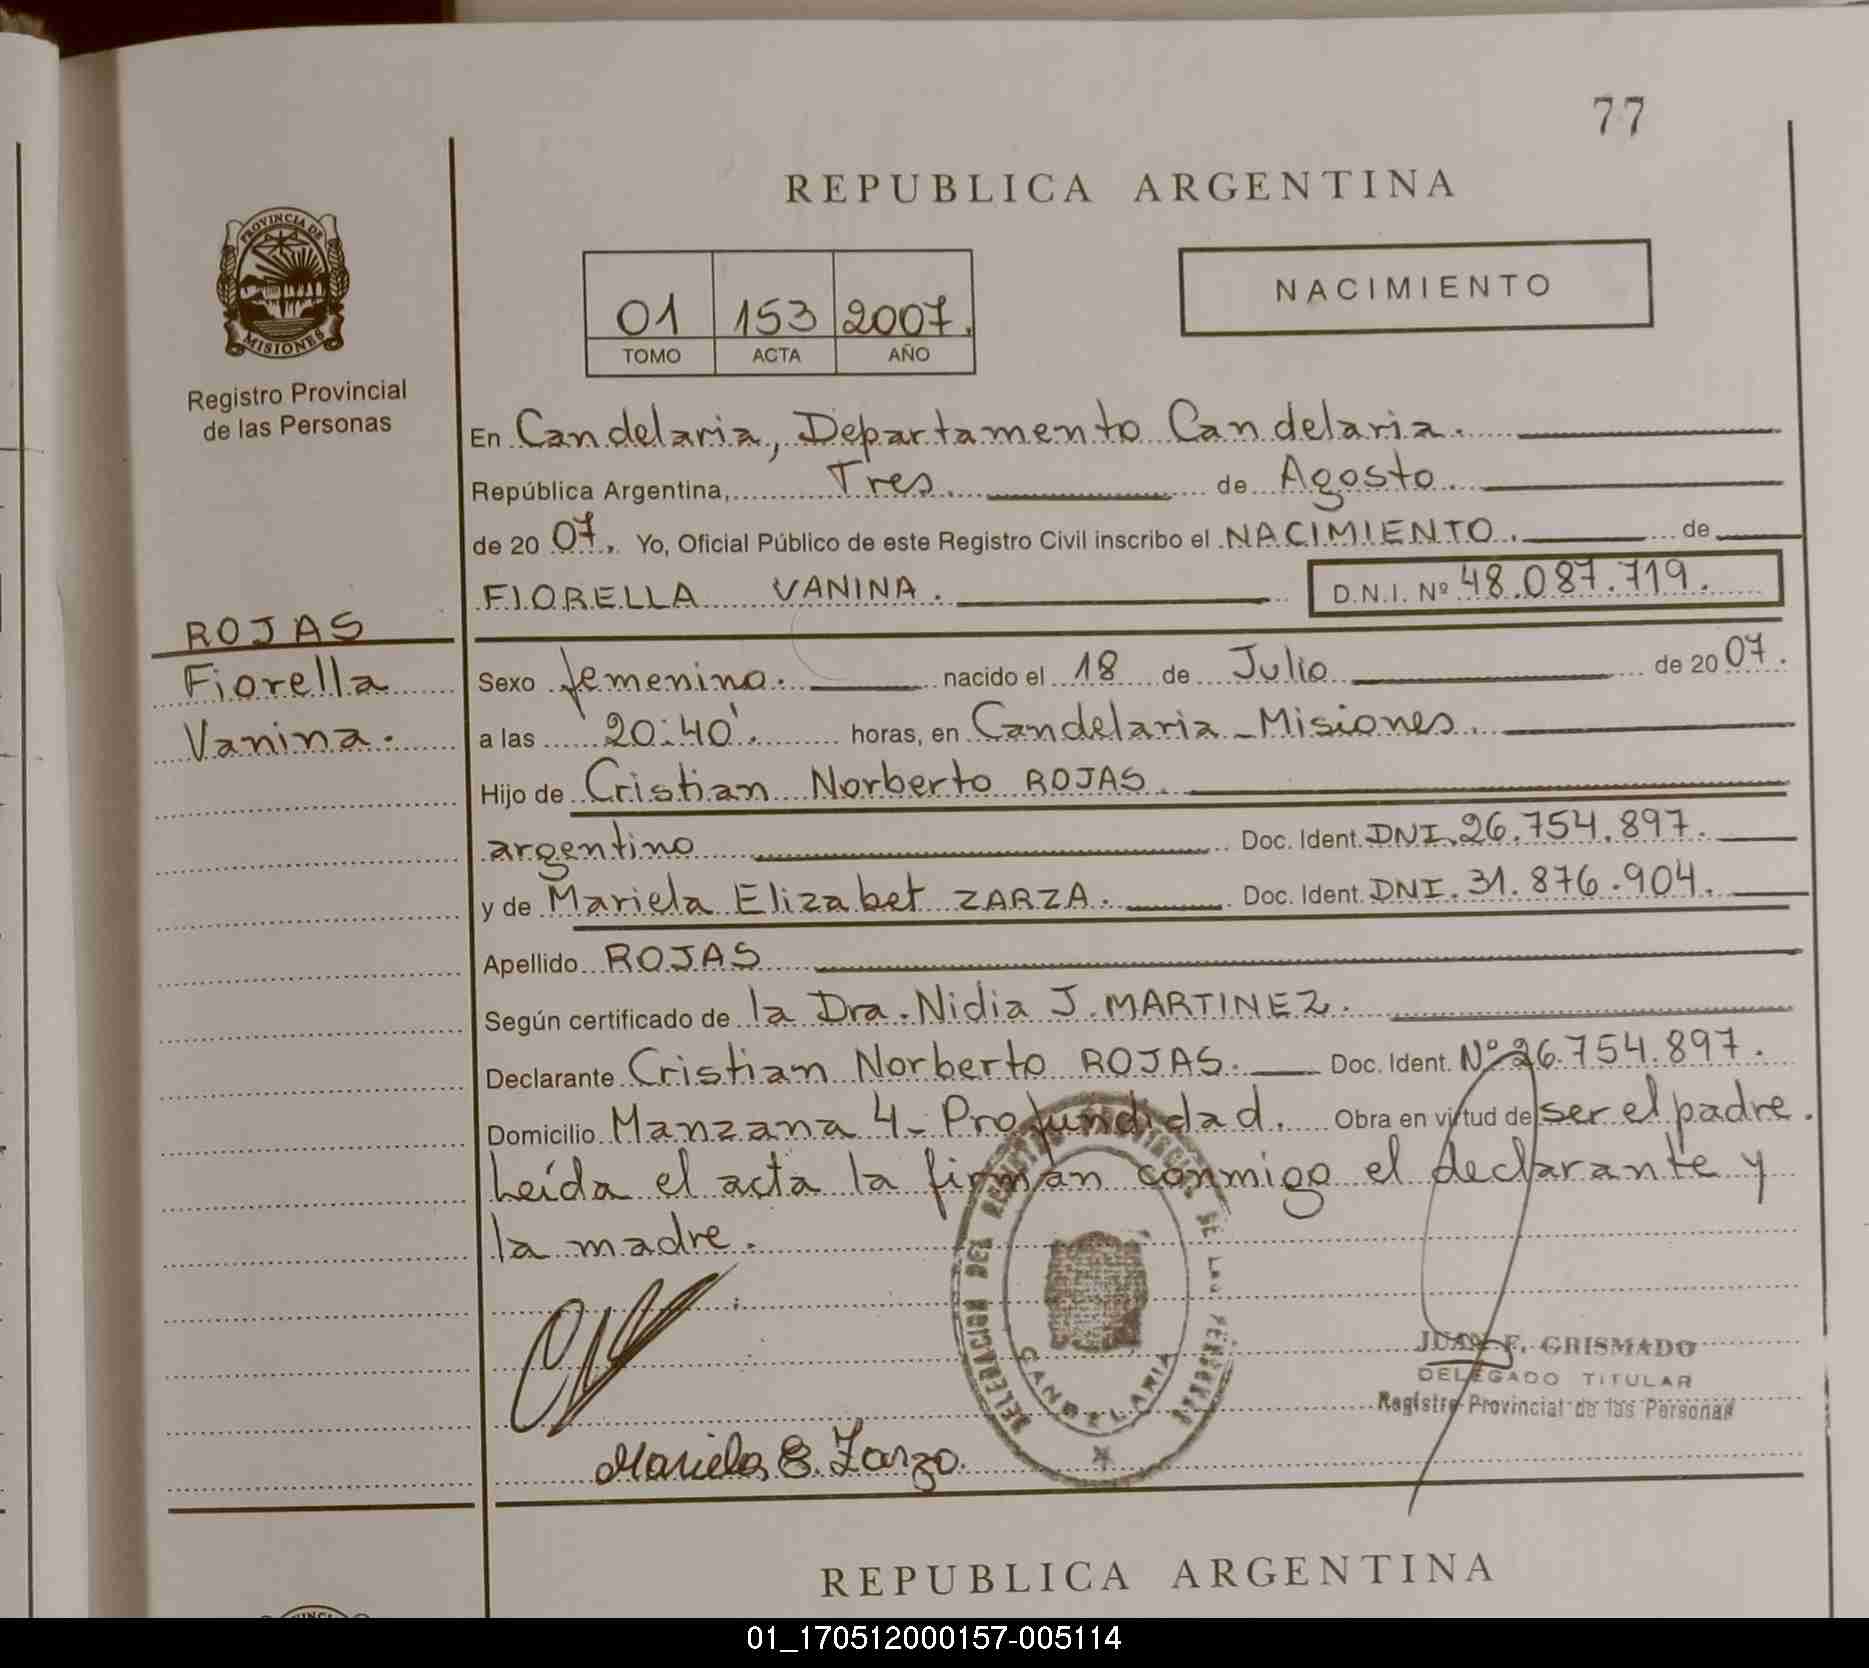 77
REPUBLICA ARGENTINA
PROVINCIA DE
MISIONES
Registro Provincial
de las Personas
01 153 2007.
TOMO ACTA AÑO
NACIMIENTO
En Candelaria, Departamento Candelaria.
República Argentina, Tres de Agosto
de 20 07. Yo, Oficial Público de este Registro Civil inscribo el NACIMIENTO. de
FIORELLA VANINA. D.N.I. Nº 48.087.719.
ROJAS
Fiorella
Vanina.
Sexo femenino. nacido el 18 de Julio de 20 07.
a las 20:40'. horas, en Candelaria - Misiones.
Hijo de Cristian Norberto ROJAS.
argentino Doc. Ident. DNI. 26.754.897.
y de Mariela Elizabet ZARZA. Doc. Ident. DNI. 31.876.904.
Apellido ROJAS
Según certificado de la Dra. Nidia J. MARTINEZ.
Declarante Cristian Norberto ROJAS. Doc. Ident. Nº 26.754.897.
Domicilio Manzana 4 - Profundidad. Obra en virtud de ser el padre.
Leída el acta la firman conmigo el declarante y
la madre.
CANDELARIA
JUAN F. GRISMADO
DELEGADO TITULAR
Registro Provincial de las Personas
Mariela E. Zarza.
REPUBLICA ARGENTINA
01_170512000157-005114